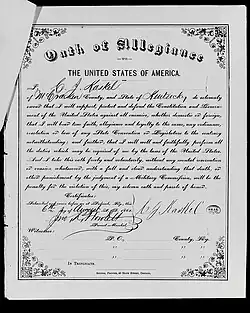 Oath of Allegiance
TO
THE UNITED STATES OF AMERICA.
I, C J Haskel of
McCracken County, and State of Kentucky, do solemnly
swear that I will support, protect and defend the Constitution and Govern-
ment of the United States against all enemies, whether domestic or foreign,
that I will bear true faith, allegiance and loyalty to the same, any ordinance,
resolution or law of any State Convention or Legislature to the contrary
notwithstanding; and further, that I will well and faithfully perform all
the duties which may be required of me by the laws of the United States.
And I take this oath freely and voluntarily, without any mental reservation
or evasion whatsoever, with a full and clear understanding that death, or
other punishment by the judgment of a Military Commission, will be the
penalty for the violation of this, my solemn oath and parole of honor.
Certificate:
Subscribed and sworn before
day of 186
C J Haskel
Provost Marshal
Witnesses
P. O., County, Ky.
In Triplicate.